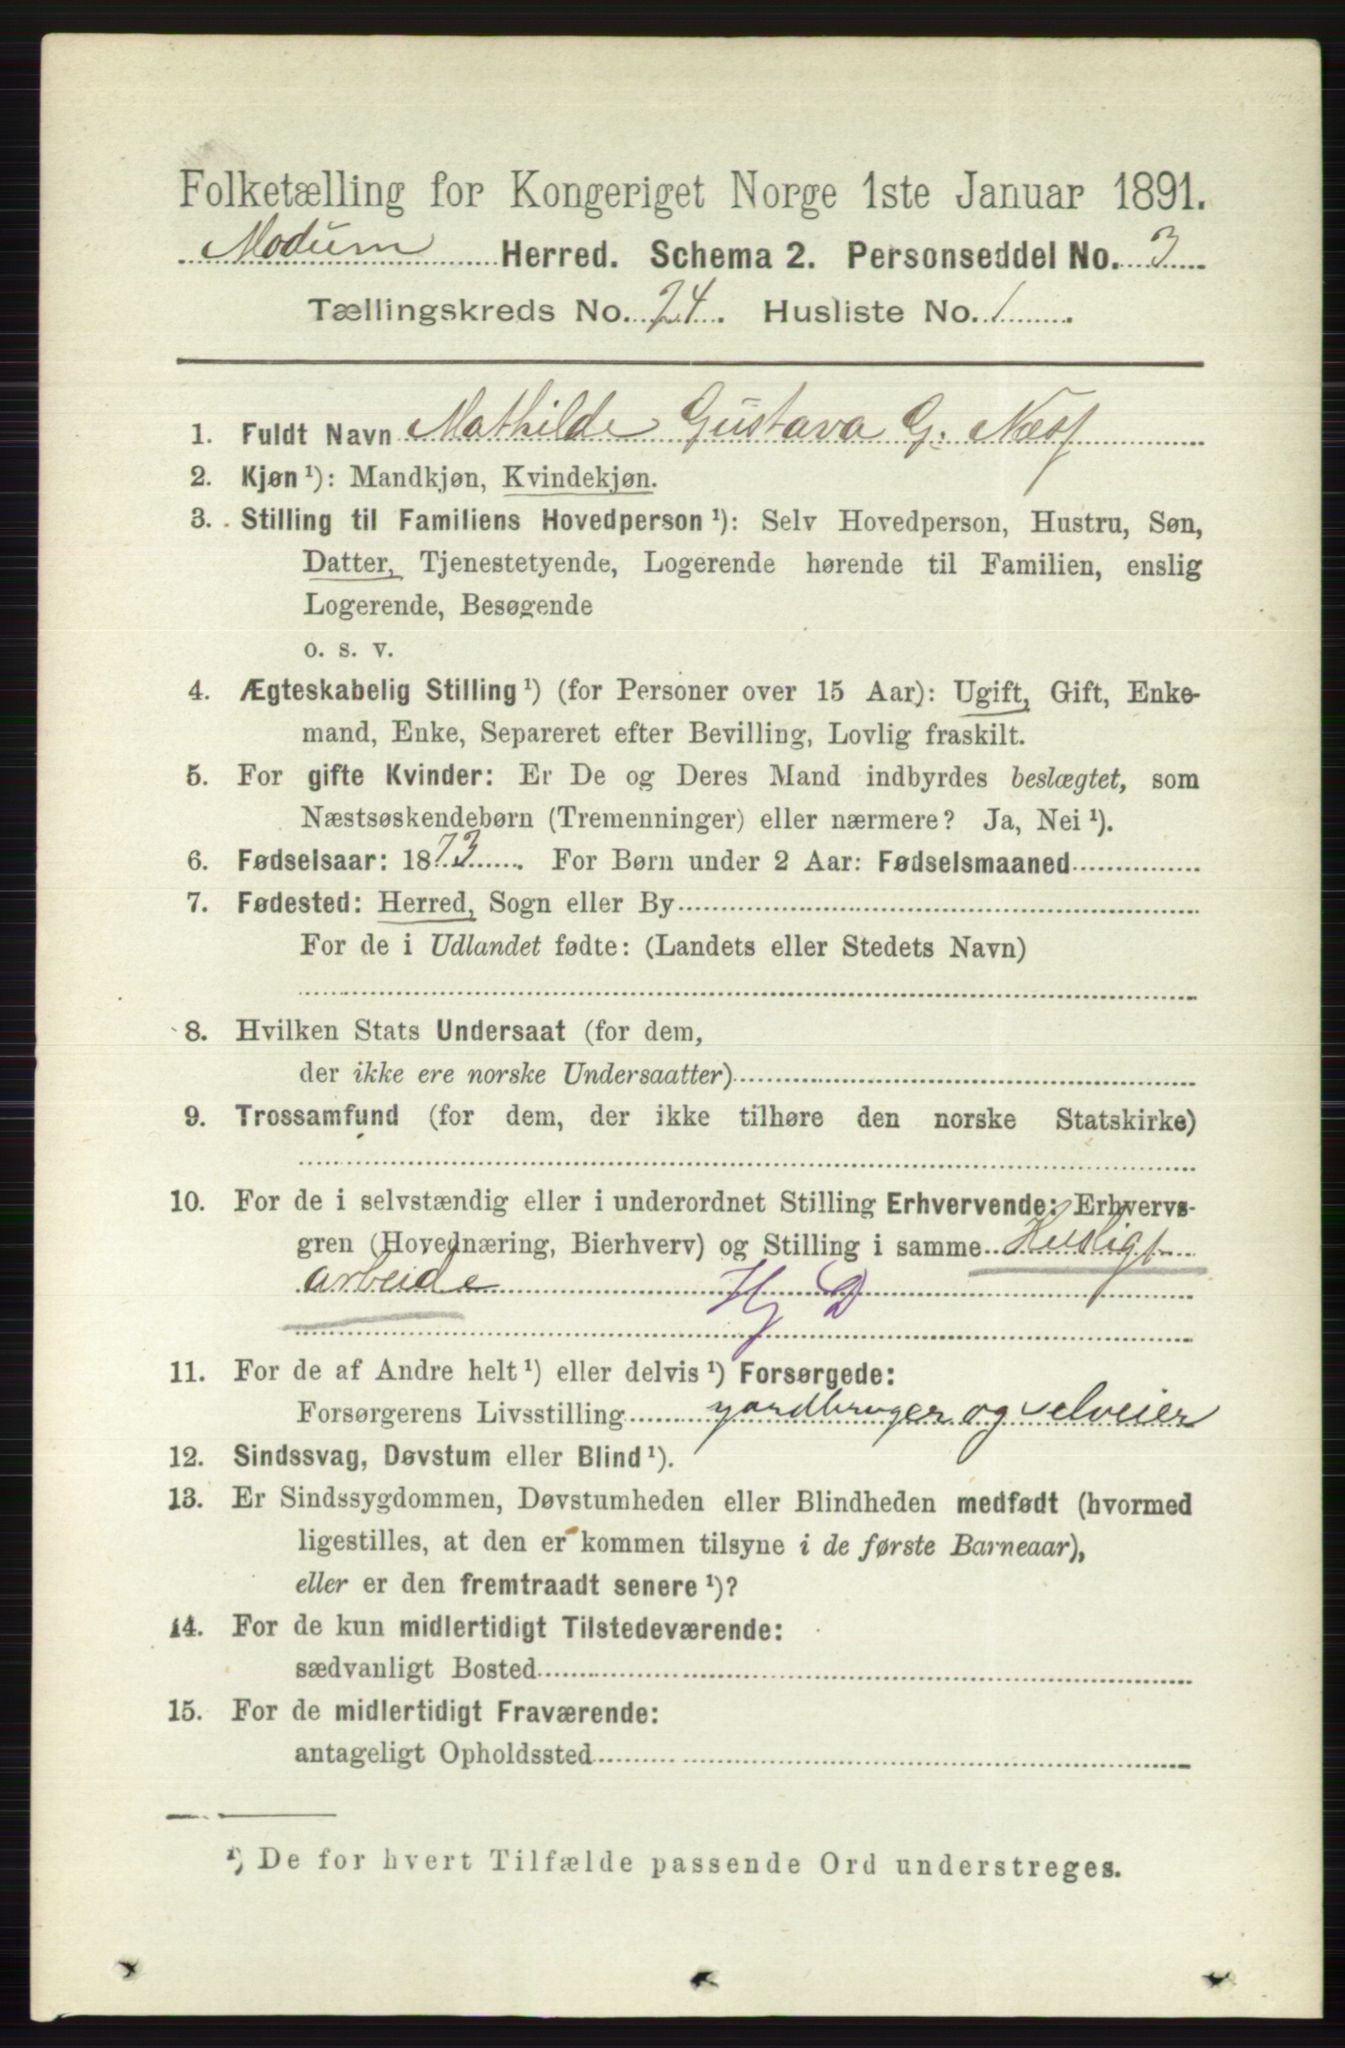 Folketælling for Kongeriget Norge 1ste Januar 1891.
Modum Herred. Schema 2. Personseddel No. 3
Tællingskreds No. 24. Husliste No. 1.
1. Fuldt Navn Mathilde Gustava G. Næss
2. Kjøn¹): Mandkjøn, Kvindekjøn.
3. Stilling til Familiens Hovedperson¹): Selv Hovedperson, Hustru, Søn,
Datter, Tjenestetyende, Logerende hørende til Familien, enslig
Logerende, Besøgende
o. s. v.
4. Ægteskabelig Stilling¹) (for Personer over 15 Aar): Ugift, Gift, Enke-
mand, Enke, Separeret efter Bevilling, Lovlig fraskilt.
5. For gifte Kvinder: Er De og Deres Mand indbyrdes beslægtet, som
Næstsøskendebørn (Tremenninger) eller nærmere? Ja, Nei¹).
6. Fødselsaar: 1873. For Børn under 2 Aar: Fødselsmaaned
7. Fødested: Herred, Sogn eller By
For de i Udlandet fødte: (Landets eller Stedets Navn)
8. Hvilken Stats Undersaat (for dem,
der ikke ere norske Undersaatter)
9. Trossamfund (for dem, der ikke tilhøre den norske Statskirke)
10. For de i selvstændig eller i underordnet Stilling Erhvervende: Erhvervs-
gren (Hovednæring, Bierhverv) og Stilling i samme Husligt
arbeide Hj D
11. For de af Andre helt¹) eller delvis¹) Forsørgede:
Forsørgerens Livsstilling gardbruger og selveier
12. Sindssvag, Døvstum eller Blind¹).
13. Er Sindssygdommen, Døvstumheden eller Blindheden medfødt (hvormed
ligestilles, at den er kommen tilsyne i de første Barneaar),
eller er den fremtraadt senere¹)?
14. For de kun midlertidigt Tilstedeværende:
sædvanligt Bosted
15. For de midlertidigt Fraværende:
antageligt Opholdssted
¹) De for hvert Tilfælde passende Ord understreges.